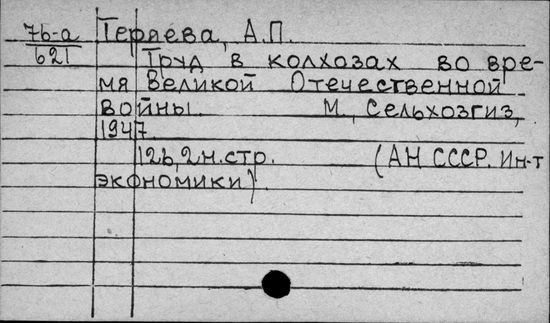 7б-а Теряева, А.П.
621 Труд в колхозах во вре-
мя Великой Отечественной
войны. М., Сельхозгиз,
1947.
126, 2 н. стр. (АН СССР. Ин-т
экономики).